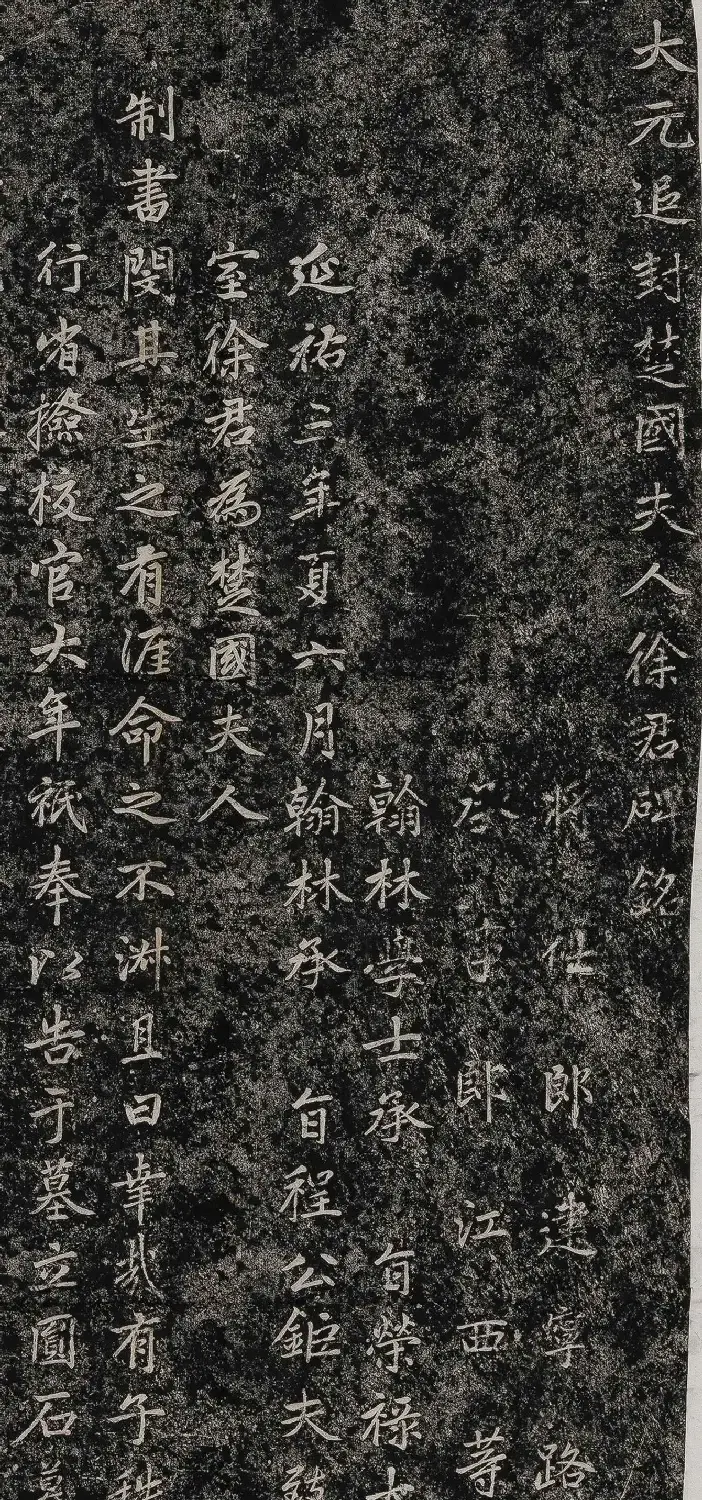 大元追封楚國夫人徐君碑銘
將仕郎建寧路
承事郎江西等
翰林學士承旨榮祿大
延祐三年夏六月翰林承旨程公鉅夫
室徐君為楚國夫人
制書閔其生之有涯命之不淋且曰幸哉有子
行省撿校官大年祗奉以告于墓立圓石